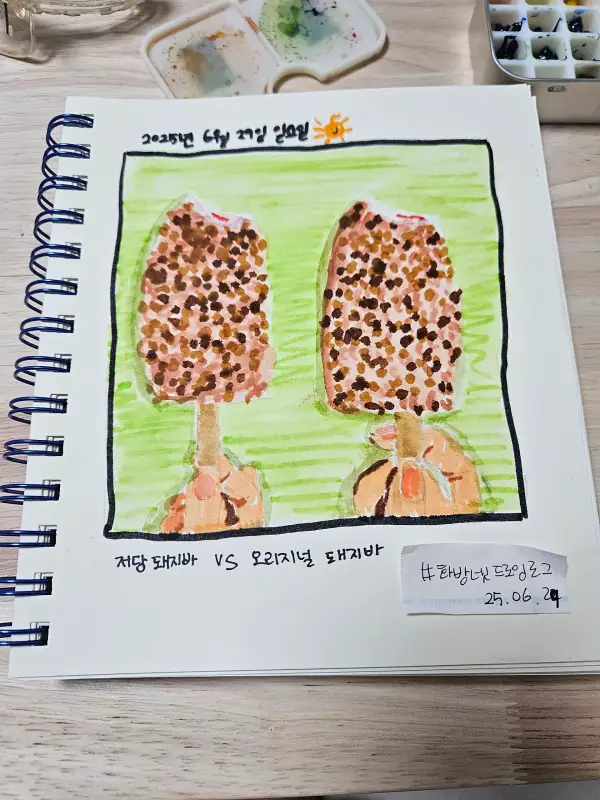 2025년 6월 29일 일요일
저당 돼지바 VS 오리지널 돼지바
#화방넷드로잉로그
25.06.29